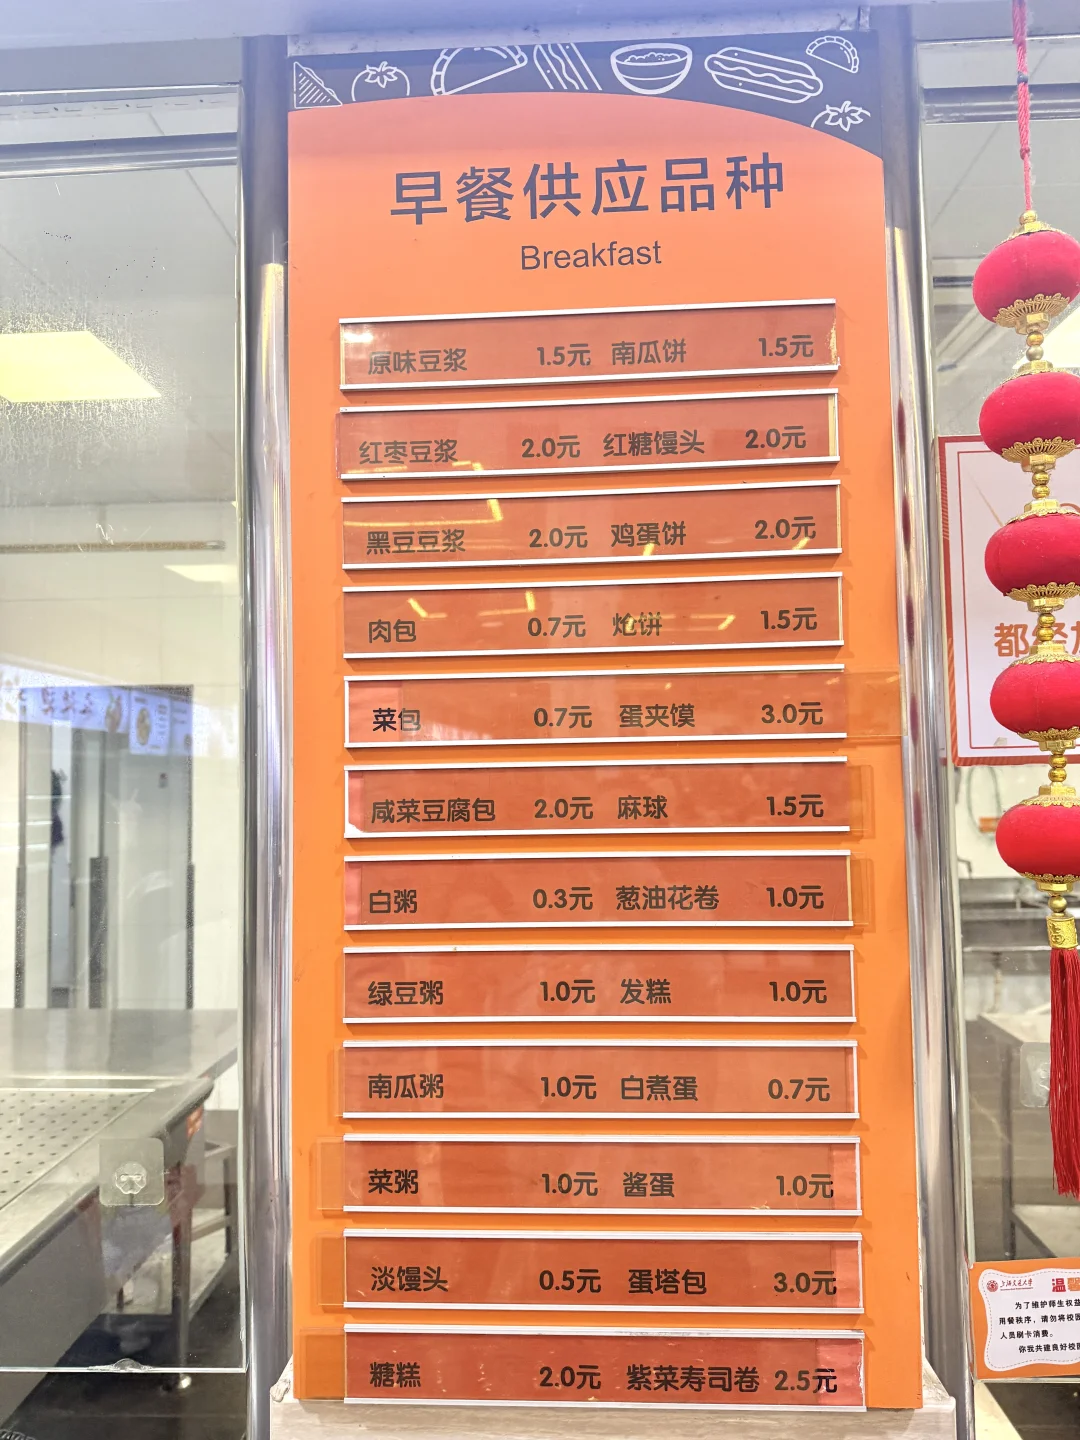 早餐供应品种
Breakfast
原味豆浆 1.5元 南瓜饼 1.5元
红枣豆浆 2.0元 红糖馒头 2.0元
黑豆豆浆 2.0元 鸡蛋饼 2.0元
肉包 0.7元 炝饼 1.5元
菜包 0.7元 蛋夹馍 3.0元
咸菜豆腐包 2.0元 麻球 1.5元
白粥 0.3元 葱油花卷 1.0元
绿豆粥 1.0元 发糕 1.0元
南瓜粥 1.0元 白煮蛋 0.7元
菜粥 1.0元 酱蛋 1.0元
淡馒头 0.5元 蛋塔包 3.0元
糖糕 2.0元 紫菜寿司卷 2.5元
都
上海交通大学 温
为了维护师生权益
用餐秩序，请勿将校园
人员刷卡消费。
你我共建良好校园